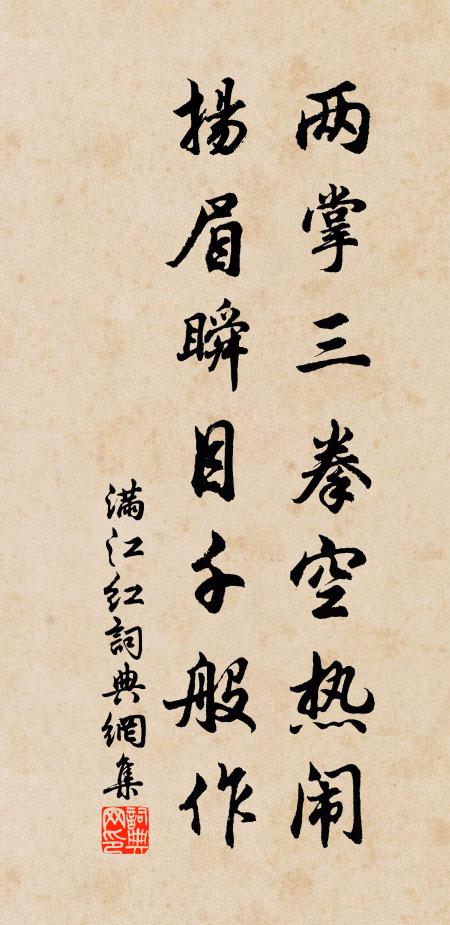 两掌三拳空热闹
揚眉瞬目千般作
满江红詞典網集
詞典网印